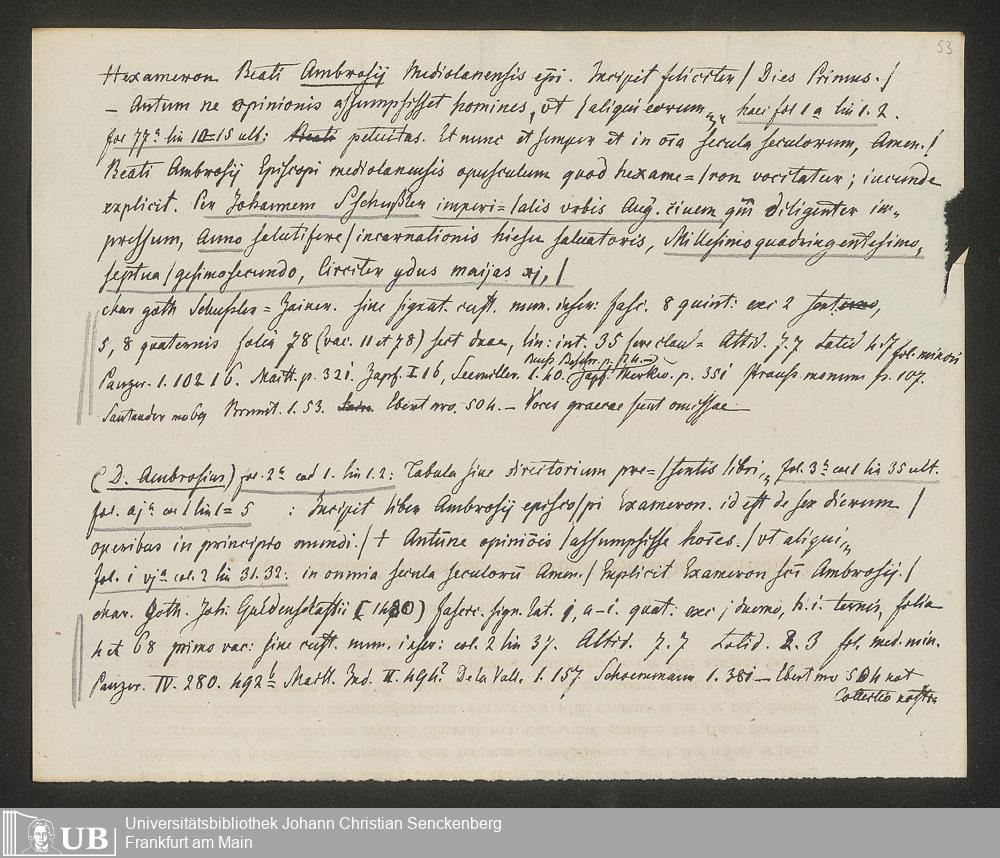 53
Hexameron Beati Ambrosij Mediolanensis epi. Incipit feliciter / Dies Primus. /
– Antum ne opinionis assumpsisset homines, vt / aliqui eorum „ haec fol 1 a lin 1. 2.
fol 77ª lin 10-15 ult: Beati petuitas. Et nunc et semper et in oia secula seculorum, Amen. /
Beati Ambrosij Episcopi mediolanensis opusculum quod hexame= / ron vocitatur; iucunde
explicit. Per Johannem Schußler imperi= / alis vrbis Aug. ciuem qui diligenter im„
pressum, Anno salutifere / incarnationis hiesu saluatoris, Millesimo quadringentesimo,
septua / gesimosecundo, Circiter ydus maijas xj, /
char goth Schussler = Zainer. sine signat. cust. num. inser: fasc. 8 quint: exc 2
5, 8 quaternis folia 78 (vac. 11 et 78) sext duae, lin: int. 35 Altid. 7.7 Latid 4.5 fol. minori
Panzer. I. 102 16. Maitt. p. 321. Zapf. I 16, Seemiller. I. 40. Zapf. Merkw. p. 351 Strauss monum p. 107.
Santander no 69 Brunet. I. 53. Ebert nro. 504. – Voces graecae sunt omissae
(D. Ambrosius) fol. 2ª col 1. lin 1.2: Tabula siue directorium pre= / sentis libri „ fol. 3ᵇ col 1 lin 35 ult.
fol. ajª col 1 lin 1=5 : Incipit liber Ambrosij episco / pi Exameron. id est de sex dierum /
operibus in principio mundi. / + Antune opiniois / assumpsisse hoies. / vt aliqui „
fol. i vjª col. 2 lin 31.32: in omnia secula seculorū Amen. / Explicit Exameron sci Ambrosij. /
char. Goth. Joh. Guldenschaffii [1480) fascic. sign. lat. j, a–i. quat: exc j duerno, h. i. ternis, folia
4 et 68 primo vac: sine cust. num. inser: col. 2 lin 37. Altid. 7.7 Latid. 2. 3 fol. med. min.
Panzer. IV. 280. 492ᵇ Maitt. Ind. II. 494? De la Vall. I. 157 Schoenemann I. 381 – Ebert nro 504 not
Collectio nostra
UB
Universitätsbibliothek Johann Christian Senckenberg
Frankfurt am Main